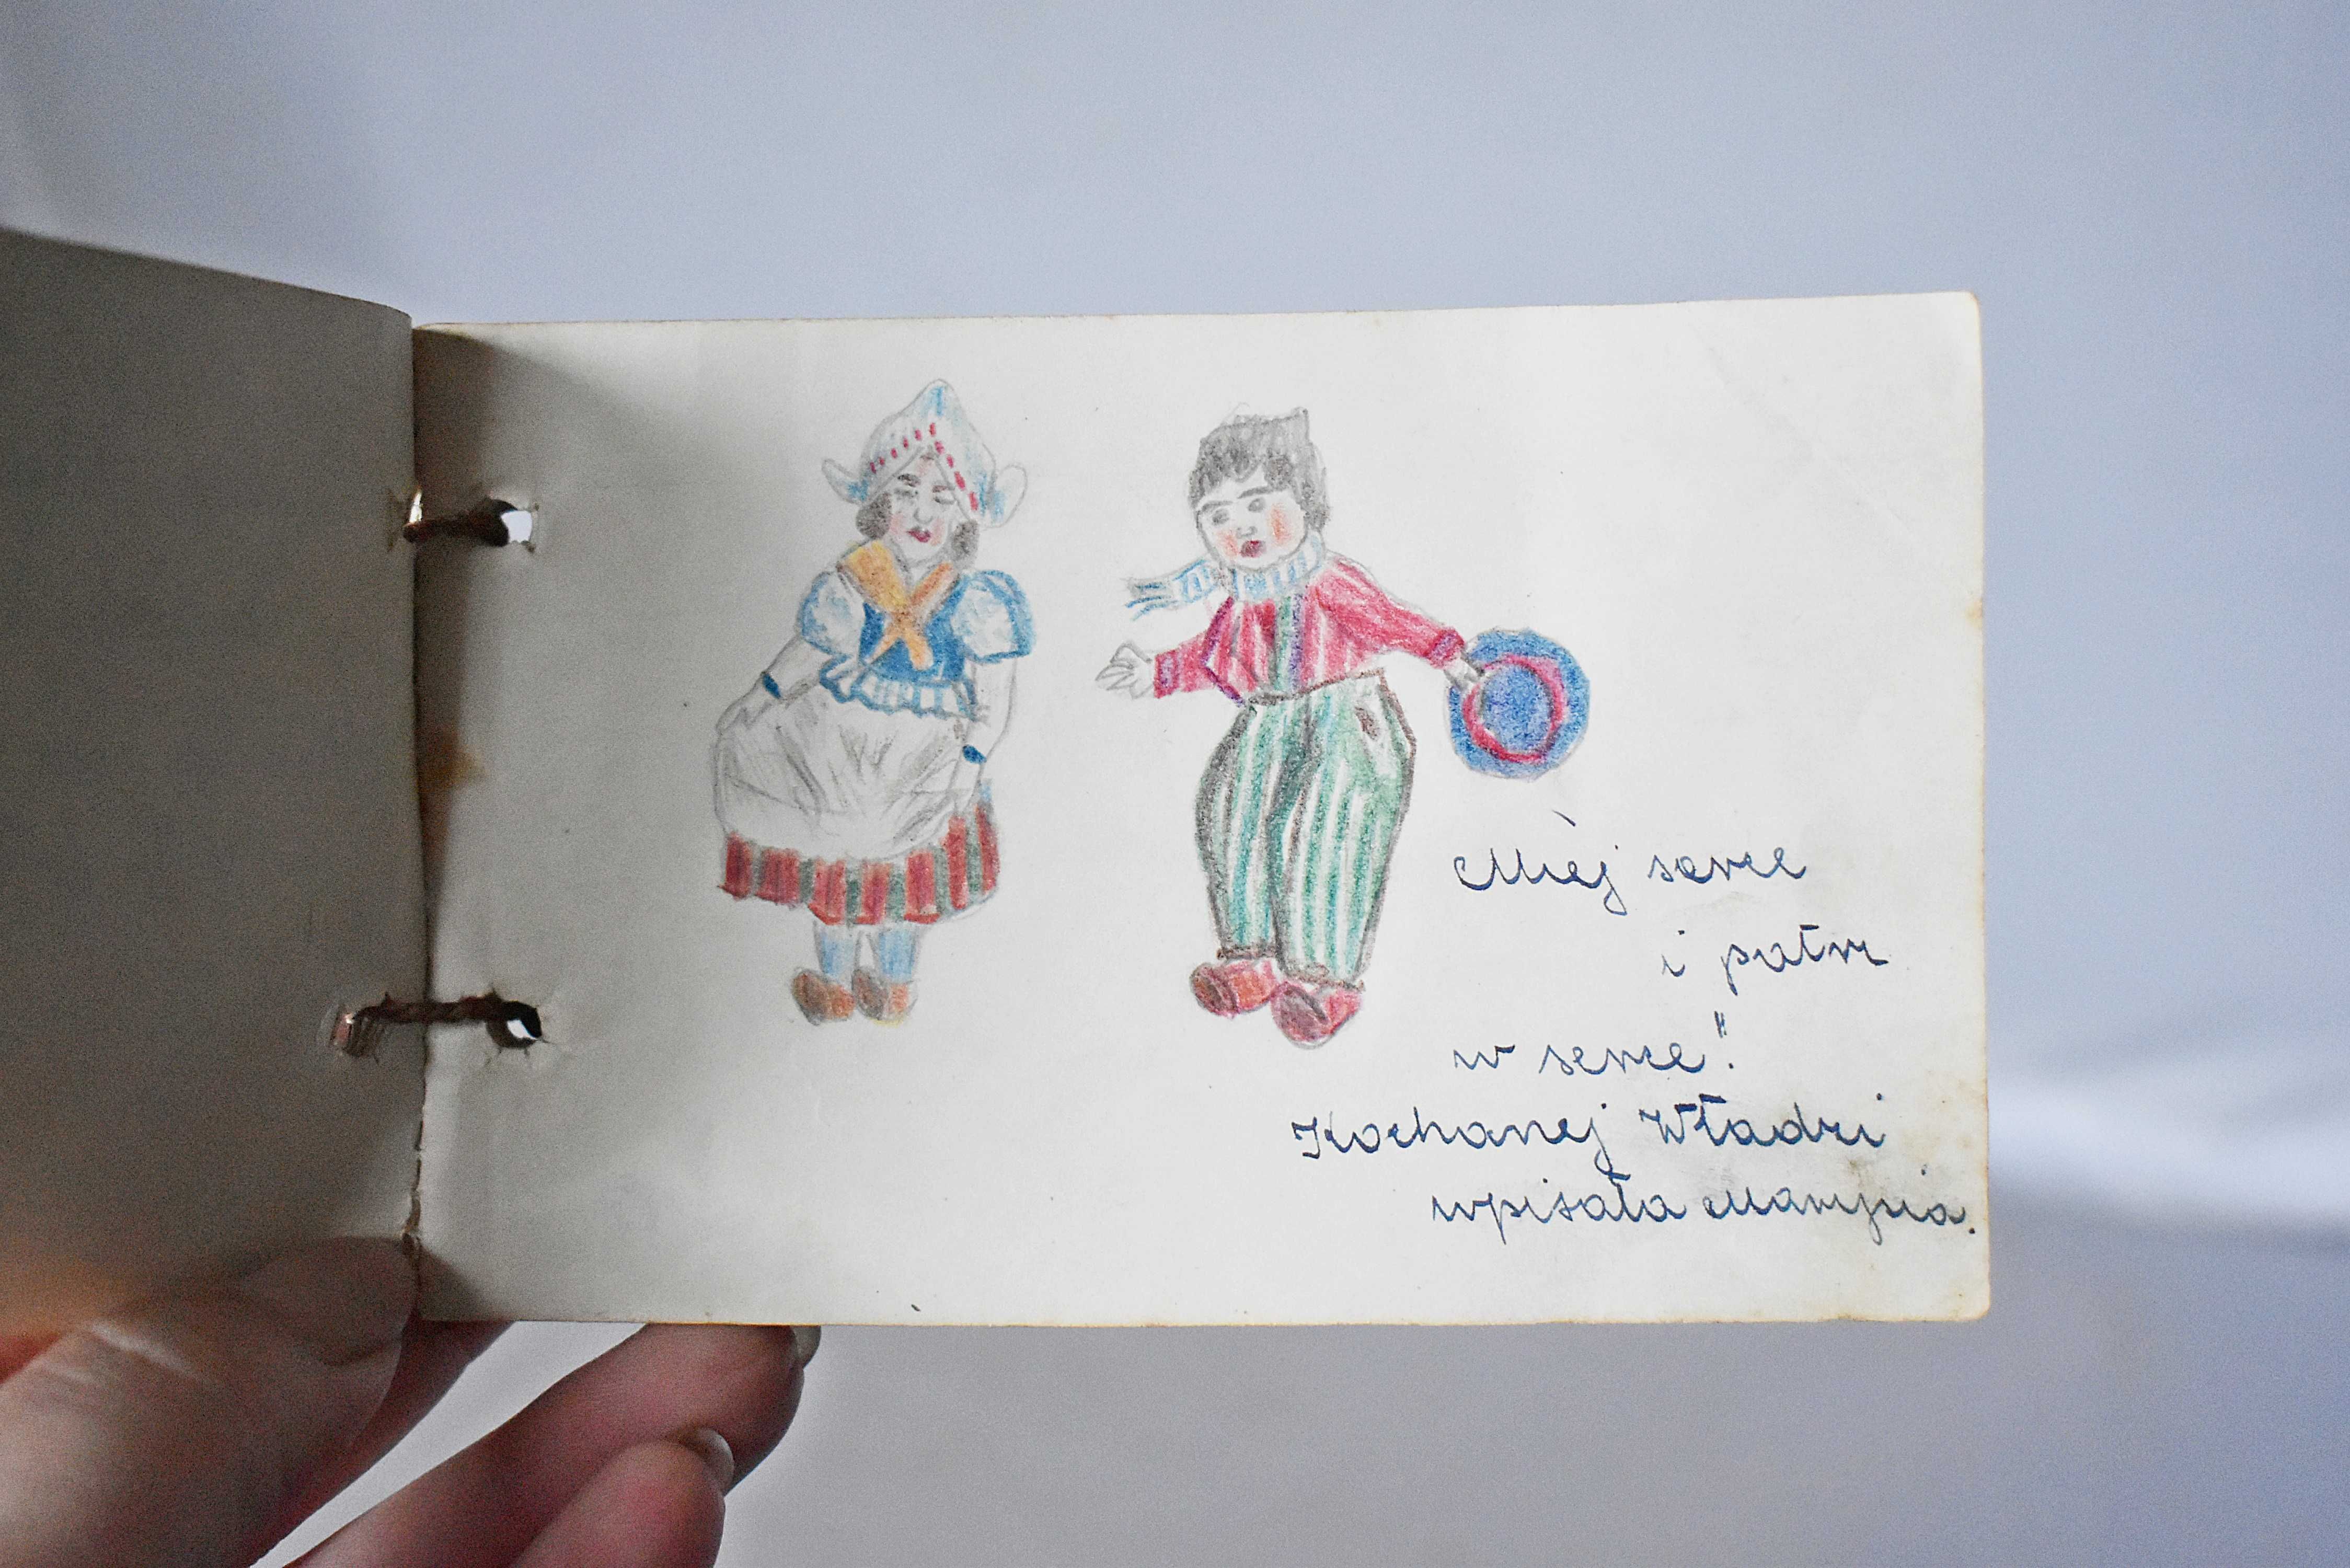 Miej serce
i patrz
w serce."
Kochanej Władzi
wpisała Marysia.